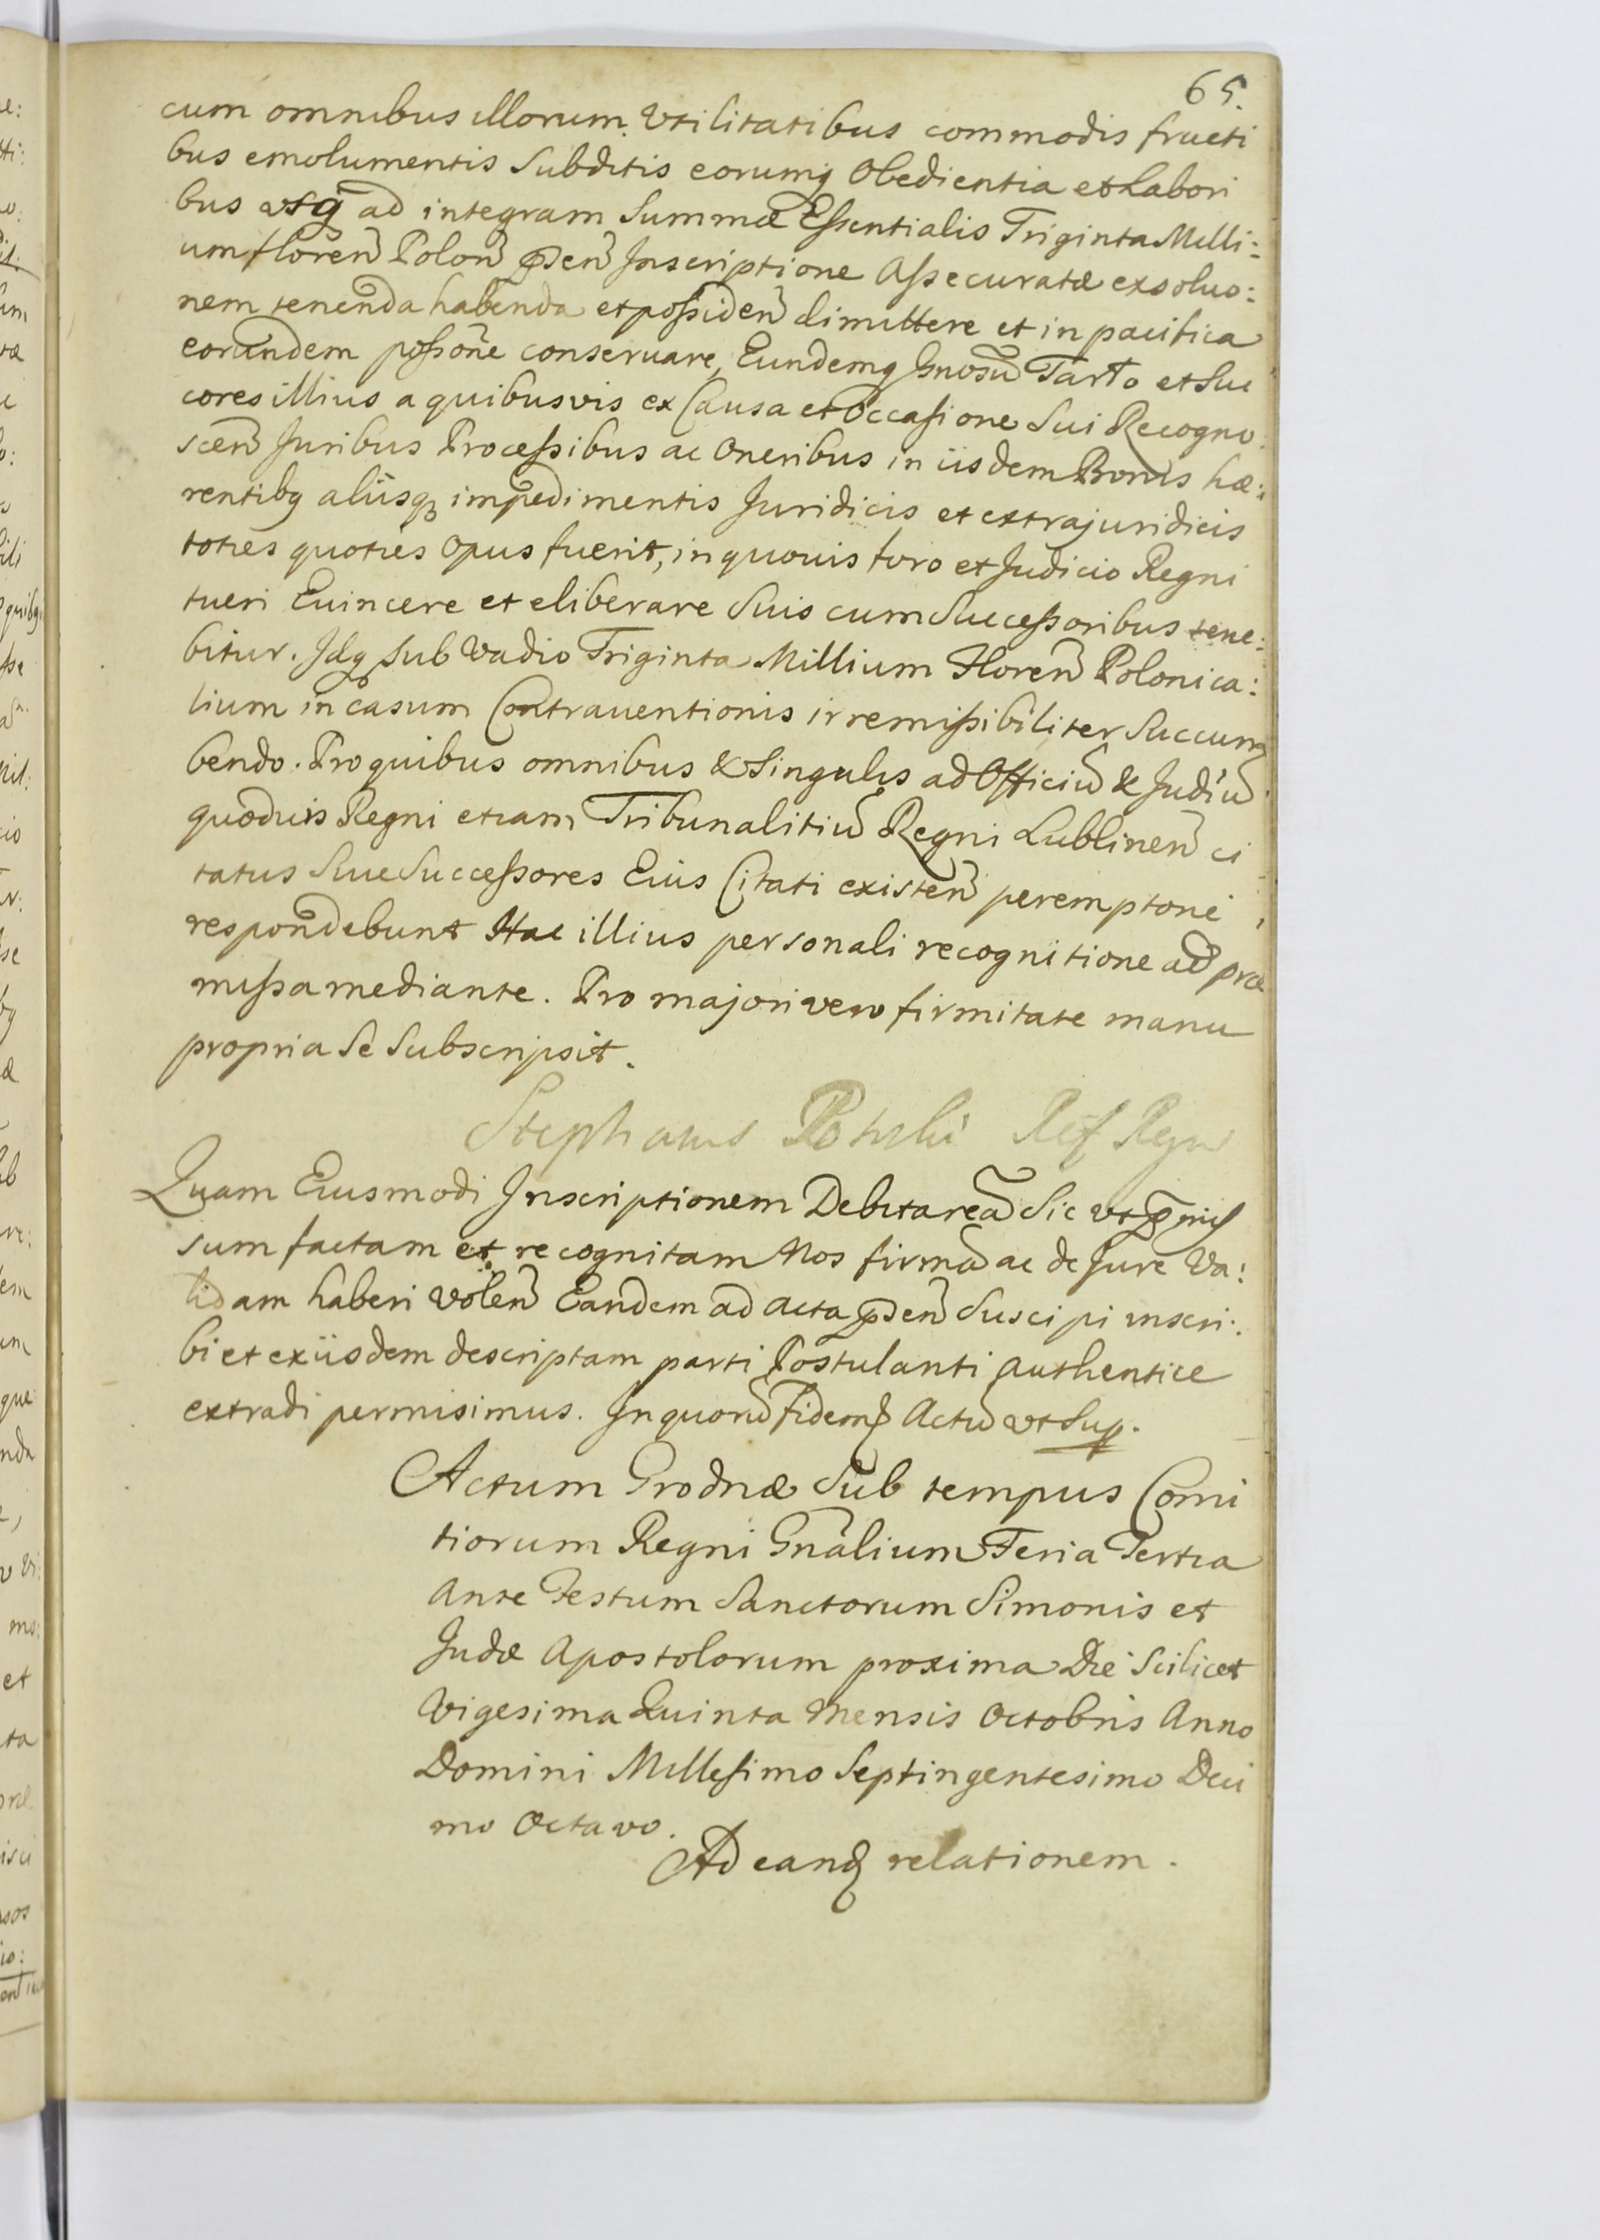 65.
cum omnibus illorum Vtilitatibus commodis fructi
bus emolumentis Subditis eorumq Obedientia et Labori
bus vsq ad integram Summæ Essentialis Triginta Milli:
um floren Polon pñsen Inscriptione Assecuratæ exsoluo:
nem tenenda habenda et possiden dimittere et in pacifica
eorundem possone conseruare, Eundemq Gnosu Tarło et Suc
cores illius a quibusvis ex Causa et Occasione Sui Recogno
scen Juribus Processibus ac Oneribus in iisdem Bonis hæ:
rentibq aliisq impedimentis Juridicis et extrajuridicis
toties quoties Opus fuerit, in quouis foro et Judicio Regni
tueri Euincere et eliberare Suis cum Successoribus tene:
bitur. Idq sub Vadio Triginta Millium Floren Polonica:
lium in casum Contrauentionis irremissibiliter Succum
bendo. Pro quibus omnibus & Singulis ad Officiu & Judiu
quoduis Regni etiam Tribunalitiu Regni Lublinen ci
tatus Siue Successores Eius Citati existen peremptorie
respondebunt Hac illius personali recognitione ad præ
missa mediante. Pro majori vero firmitate manu
propria Se Subscripsit.
Stephanus Potulicki Ref Regni
Quam Eiusmodi Inscriptionem Debitarea Sic vt pmis
sum factam et recognitam Nos firma ac de Jure Va:
lidam haberi volen Eandem ad acta pñsen Suscipi inscri:
bi et ex iisdem descriptam parti Postulanti authentice
extradi permisimus. In quoru fidem Actu vt Sup.
Actum Grodnæ Sub tempus Comi
tiorum Regni Gnalium Feria Tertia
ante Festum Sanctorum Simonis et
Judæ Apostolorum proxima Die Scilicet
Vigesima Quinta Mensis Octobris Anno
Domini Millesimo Septingentesimo Deci
mo Octavo.
Ad eandq relationem.